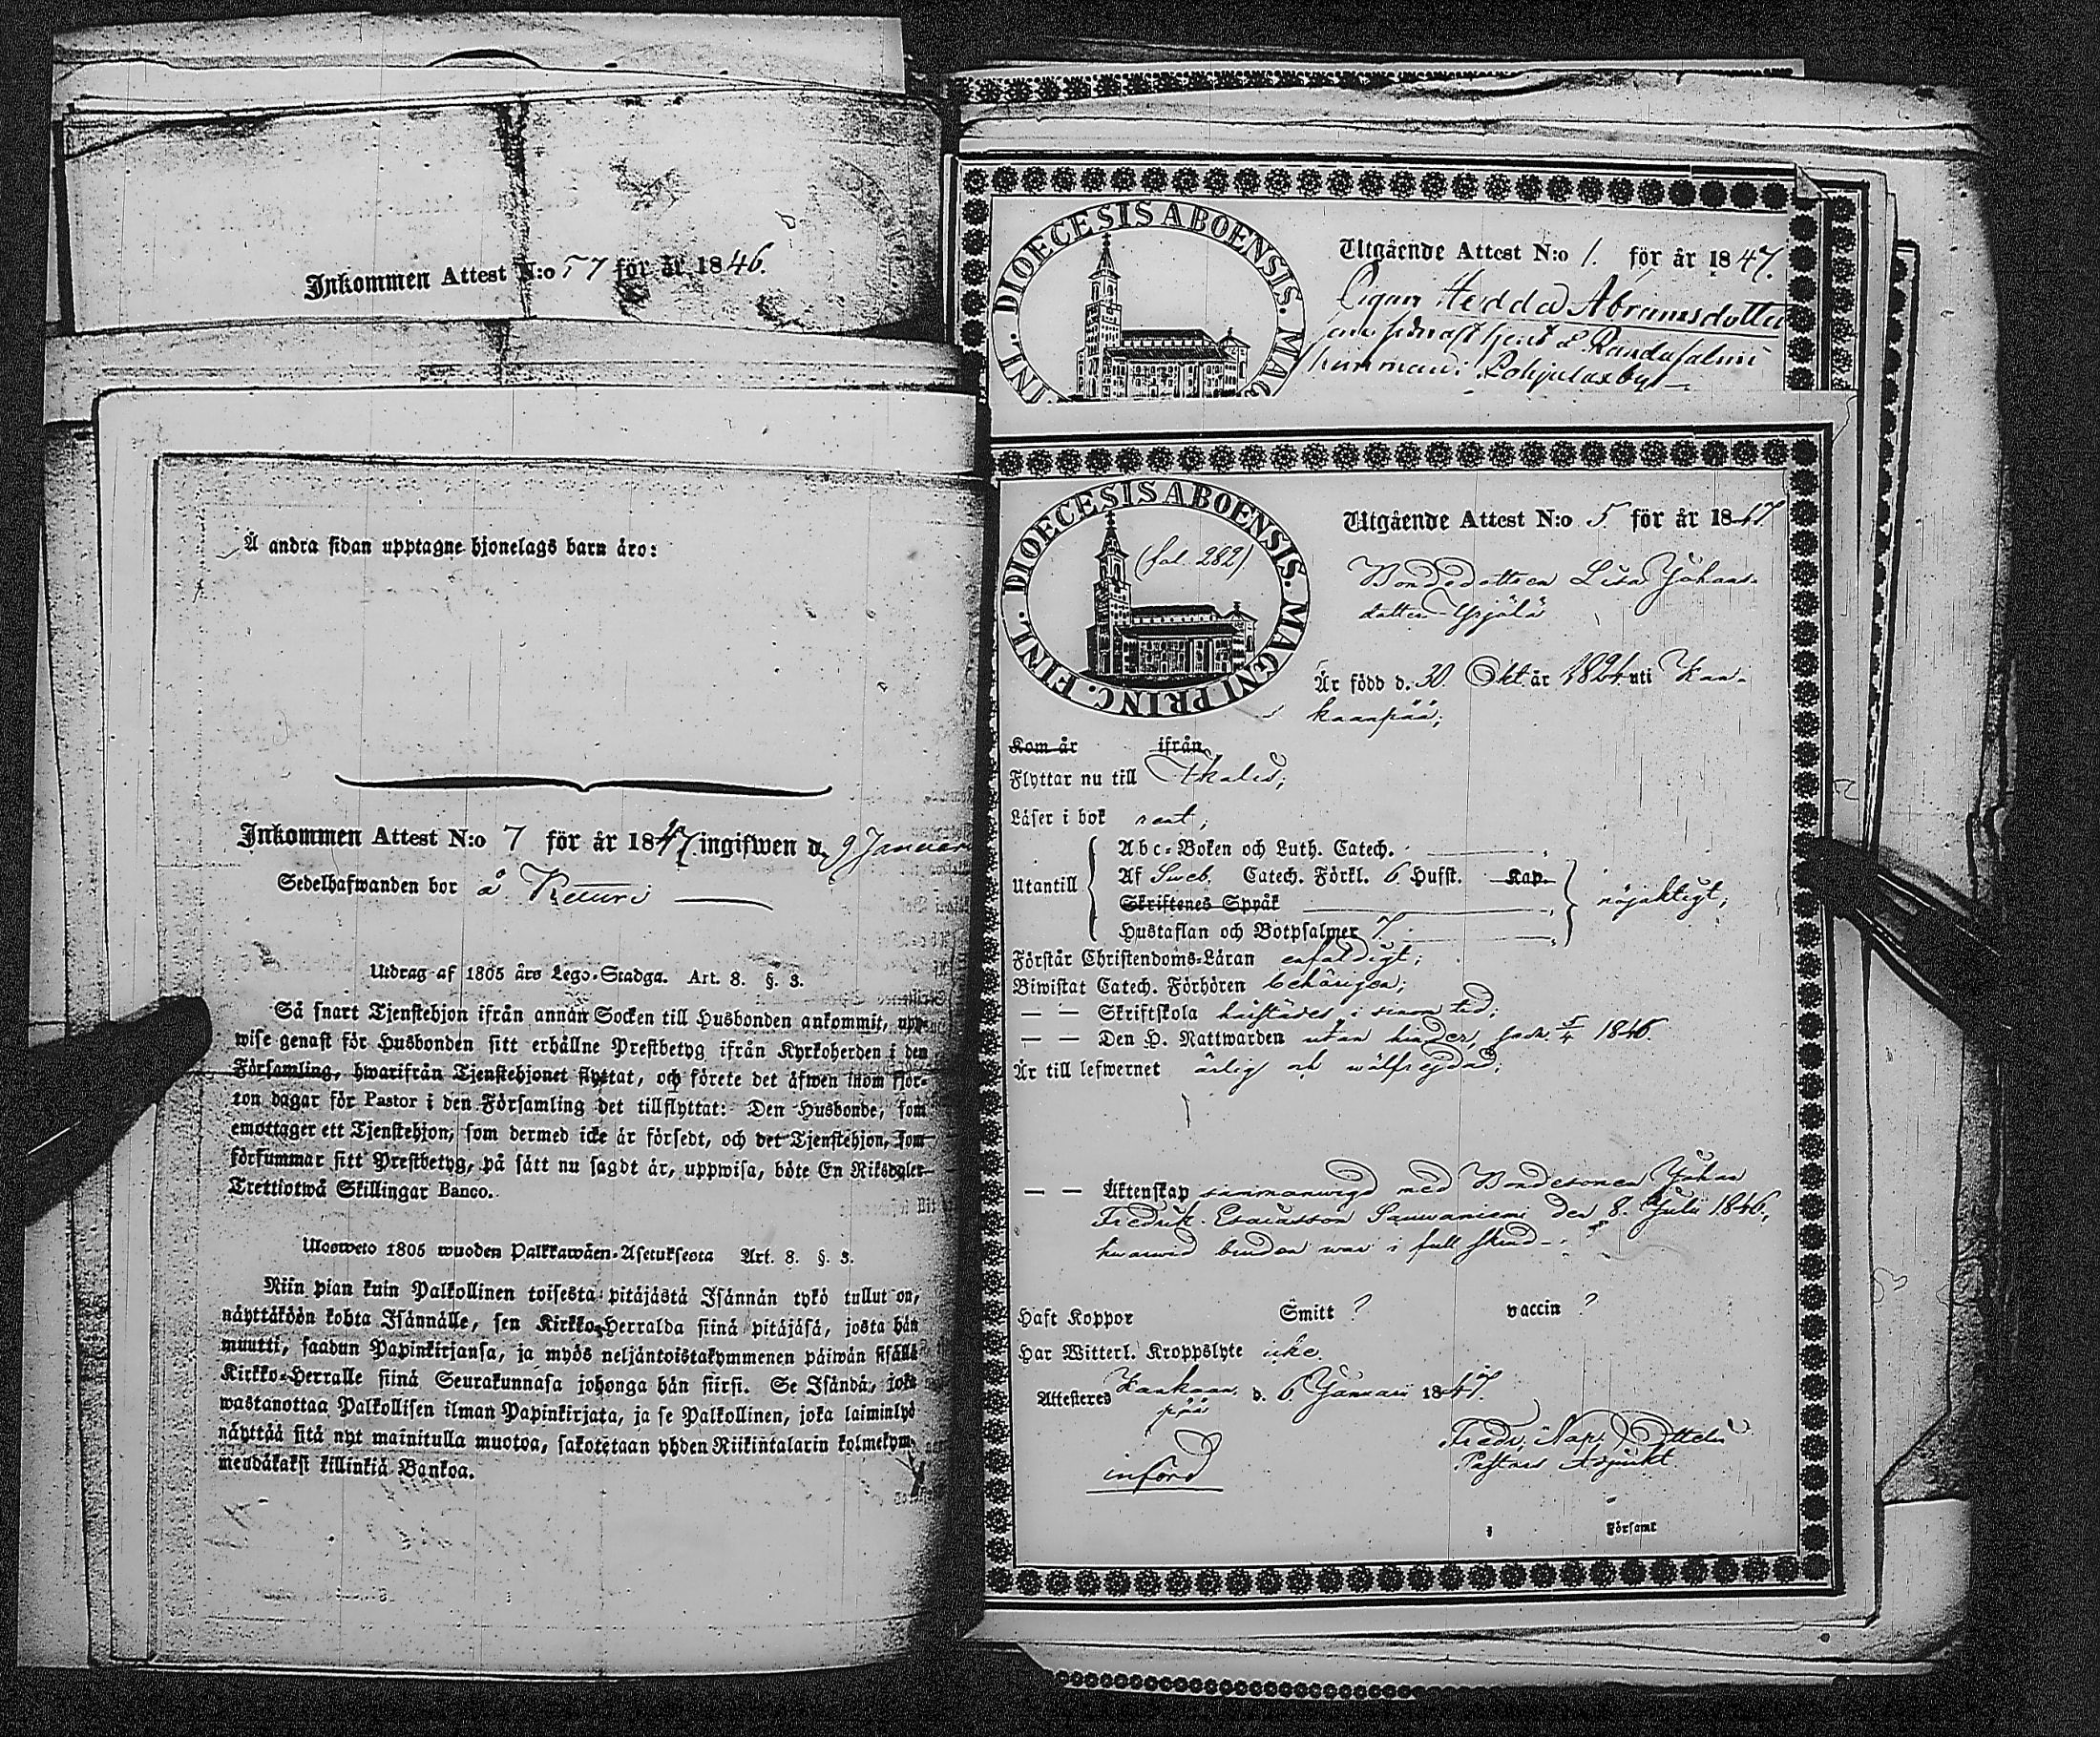 Inkommen Attest N:o 57 för år 1846.
Å andra sidan upptagne hjonelags barn äro:
Inkommen Attest N:o 7 för år 1847 ingifwen d. 9 Januar
Sedelhafwanden bor å Keturi
Utdrag af 1805 års Lego-Stadga. Art. 8. §. 3.
Så snart Tjenstehjon ifrån annan Socken till Husbonden ankommit, upp-
wise genast för Husbonden sitt erhållne Prestbetyg ifrån Kyrkoherden i den
Församling, hwarifrån Tjenstehjonet flyttat, och förete det äfwen inom fjor-
ton dagar för Pastor i den Församling det tillflyttat: Den Husbonde, som
emottager ett Tjenstehjon, som dermed icke är försedt, och det Tjenstehjon, som
försummar sitt Prestbetyg, på sätt nu sagdt är, uppwisa, böte En Riksdaler
Trettiotwå Skillingar Banco.
Ulosweto 1805 wuoden Palkkawäen-Asetuksesta Art. 8. §. 3.
Niin pian kuin Palkollinen toisesta pitäjästä Isännän tykö tullut on,
näyttäköön kohta Isännälle, sen Kirkko-Herralda siinä pitäjäsä, josta hän
muutti, saadun Papinkirjansa, ja myös neljäntoistakymmenen päiwän sisällä
Kirkko-Herralle siinä Seurakunnasa johonga hän siirsi. Se Isändä, joka
wastanottaa Palkollisen ilman Papinkirjata, ja se Palkollinen, joka laiminlyö
näyttää sitä nyt mainitulla muotoa, sakotetaan yhden Riikintalarin kolmekym-
mendäkaksi killinkiä Bankoa.
FINL. DIOECESIS ABOENSIS. MAG
Utgående Attest N:o 1. för år 1847.
Pigan Hedda Abramsdotter
Pohjulaxby
FINL. DIOECESIS ABOENSIS. MAGNI PRINC.
(fol. 282)
Utgående Attest N:o 5 för år 1847
Bondedottren Lisa Johans-
dotter Yrjälä
Är född d. 30. Okt. år 1824 uti Kan-
kaanpää;
Kom år ifrån
Flyttar nu till Ikalis;
Läser i bok rent;
Utantill
Abc-Boken och Luth. Catech.
Af Sweb. Catech. Förkl. 6 Hufst. Kap.
Skriftenes Språk
Hustaflan och Botpsalmer 7
nöjaktigt;
Förstår Christendoms-Läran enfaldigt;
Biwistat Catech. Förhören behörigen;
— — Skriftskola i sinom tid;
— — Den H. Nattwarden utan hinder, 5/4 1846.
Är till lefwernet ärlig och wälfrejdad;
— — Äktenskap sammanwigd med Bondesonen Johan
Fredrik Esaiasson Sauwaniemi den 8. Julii 1846,
hwarwid bruden war i full skrud
Haft Koppor Smitt ? vaccin ?
Har Witterl. Kroppslyte icke
Attesteres Kankaan- d. 6 Januarii 1847.
pää
Fredr. Nap.
Pastors Adjunkt
införd
i Församl